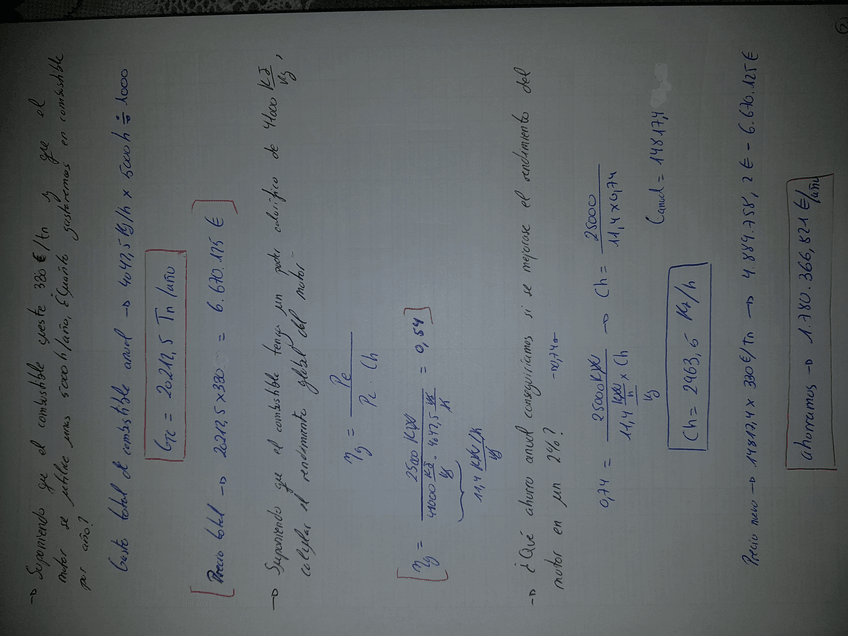 → Suponiendo que el combustible cueste 330 €/tn y que el
motor se utilice unas 5000 h/año, ¿Cuánto gastaremos en combustible
por año?
Gasto total de combustible anual → 4042,5 Kg/h × 5000 h ÷ 1000
GTC = 20212,5 Tn/año
Precio total → 20212,5 × 330 = 6.670.125 €
→ Suponiendo que el combustible tenga un poder calorífico de 41000 KJ/Kg,
calcular el rendimiento global del motor.
ηg = Pe / Pc · Ch
ηg = 25000 / 41000 KJ/Kg · 4042,5 = 0,54
11,4
→ ¿Qué ahorro anual conseguiríamos si se mejorase el rendimiento del
motor en un 2%? → 0,74
0,74 = 25000 / 11,4 × Ch → Ch = 25000 / 11,4 × 0,74
Ch = 2963,5 Kg/h
Canual = 14817,4
Precio nuevo → 14817,4 × 330 €/tn → 4.889.758,2 € - 6.670.125 €
ahorramos → 1.780.366,821 €/año